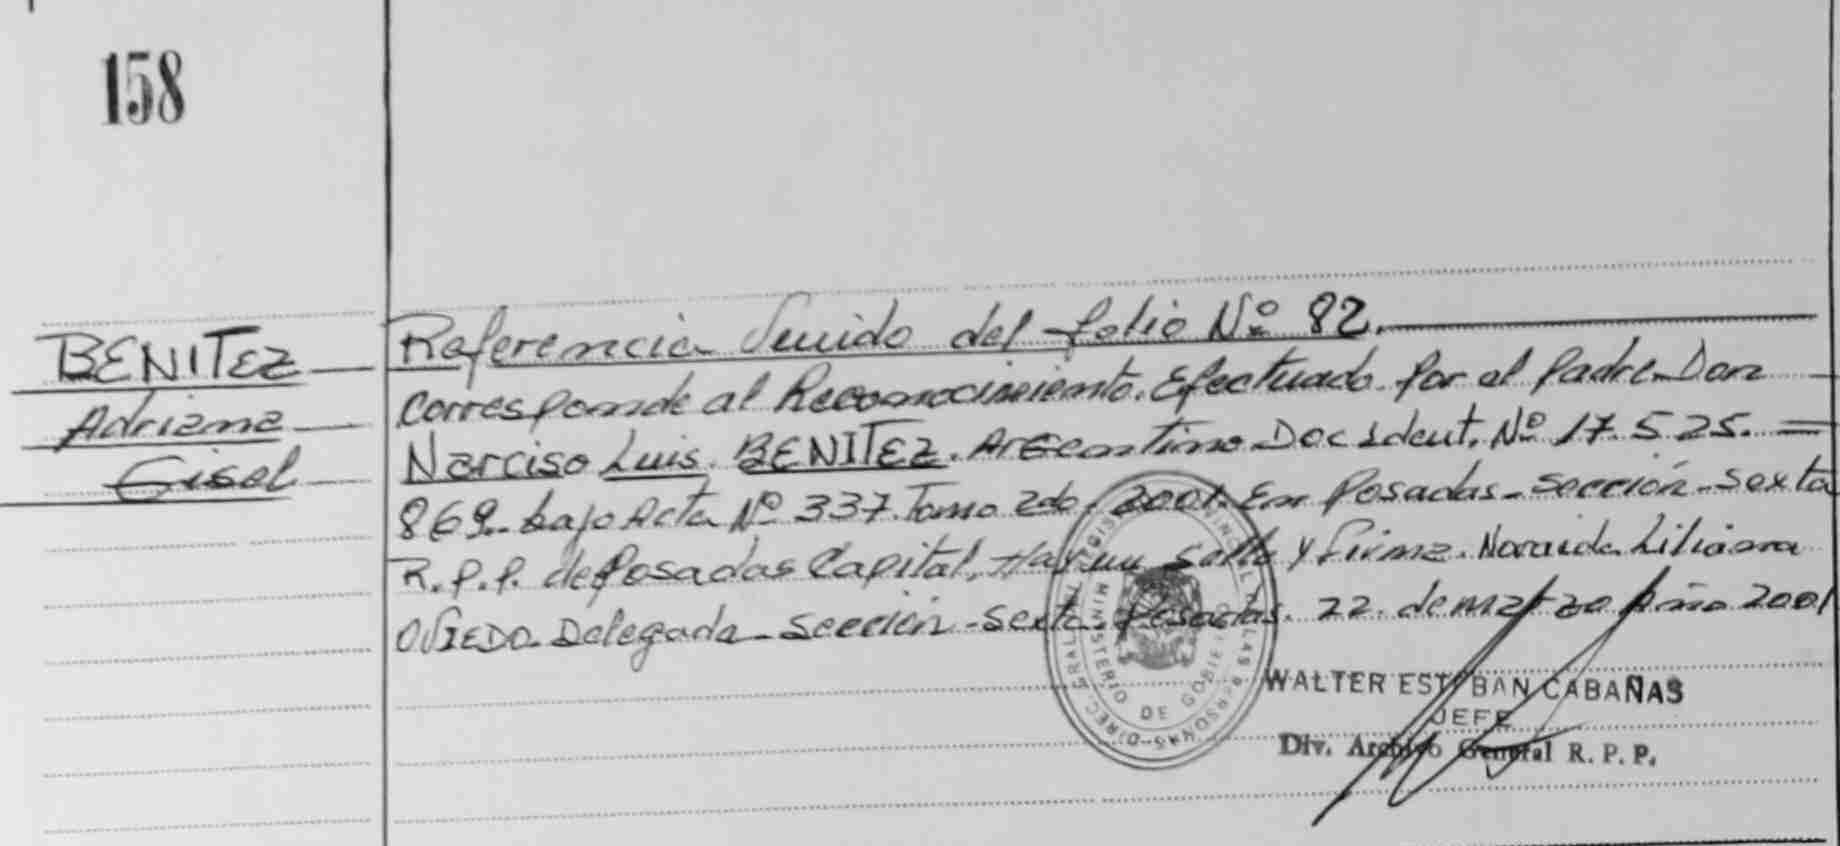 158
BENITEZ
Adriana
Gisel
Referencia Venido del folio Nº 82.
Corresponde al Reconocimiento. Efectuado por el padre Don
Narciso Luis. BENITEZ. Argentino Doc Ident. Nº 17.525.=
869. bajo Acta Nº 337. Tomo 2do. 2001. En Posadas - sección - sexta
R.P.P. de Posadas Capital. Hay un Sello y firma. Liliana
OVIEDO. Delegada - sección - sexta. Posadas. 22. de marzo año 2001
WALTER ESTEBAN CABAÑAS
JEFE
Div. Archivo General R. P. P.
MINISTERIO DE GOBIE